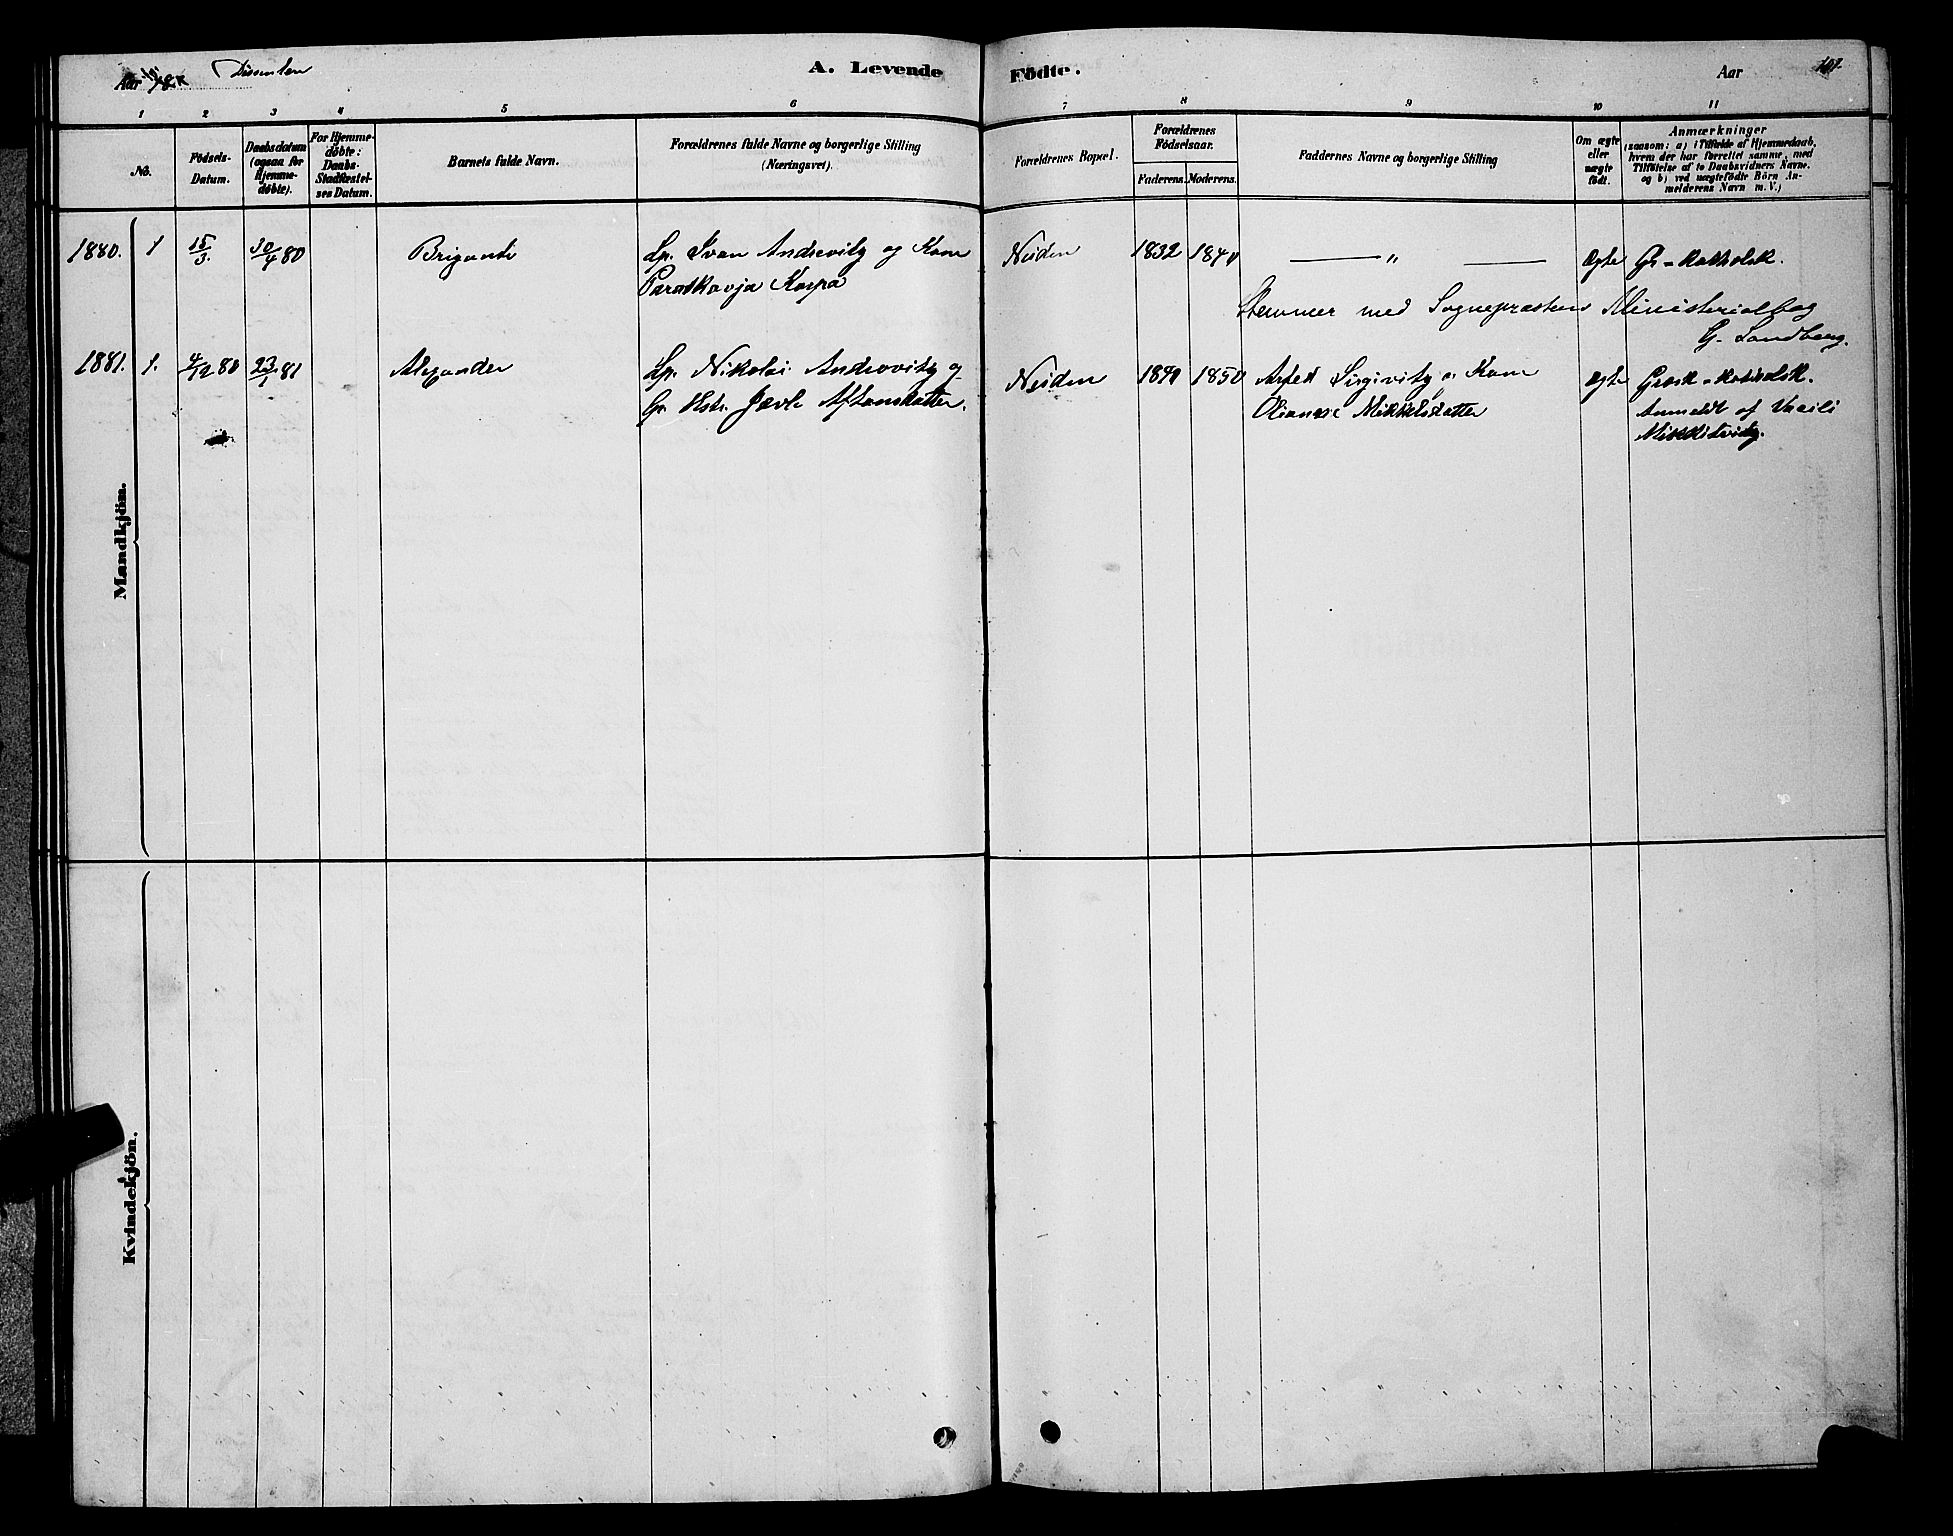 Aar 18 Dissentere
A. Levende Födte.
Aar 101.
1 2 3 4 5 6 7 8 9 10 11
No.
Födsels-Datum.
Daabsdatum (ogsaa for Hjemme-döbte).
For Hjemme-döbte: Daabs-Stadfæstel-ses Datum.
Barnets fulde Navn.
Forældrenes fulde Navne og borgerlige Stilling (Næringsvei).
Forældrenes Bopæl.
Forældrenes Födselsaar.
Faderens. Moderens.
Faddernes Navne og borgerlige Stilling
Om ægte eller uægte födt.
Anmærkninger
(saasom: a) i Tilfælde af Hjemmedaab,
hvem der har forrettet samme, med
Tilföielse af to Daabsvidners Navne.
og b) ved uægtefödte Börn An-
melderens Navn m. V.)
Mandkjön.
1880. 1 15/3. 30/4 80 Brigante Lp. Ivan Andrevitz og Kone Neiden 1832 1840 — " — Ægte Gr-katholsk.
Paraskavja Karpa
Stemmer med Sognepræstens Ministerialbog
G. Sandberg.
1881. 1. 4/12 80 23/1 81 Alexander Lp. Nikolai Andrevitz og Neiden 1849 1850 Arfed Sirgivitz o. Kone Ægte Græsk-katholsk.
Gr. Hstr. Jævle Aftansdatter. Mikkelsdatter Anmeldt af Vasili
Mikkitvitz.
Kvindekjön.